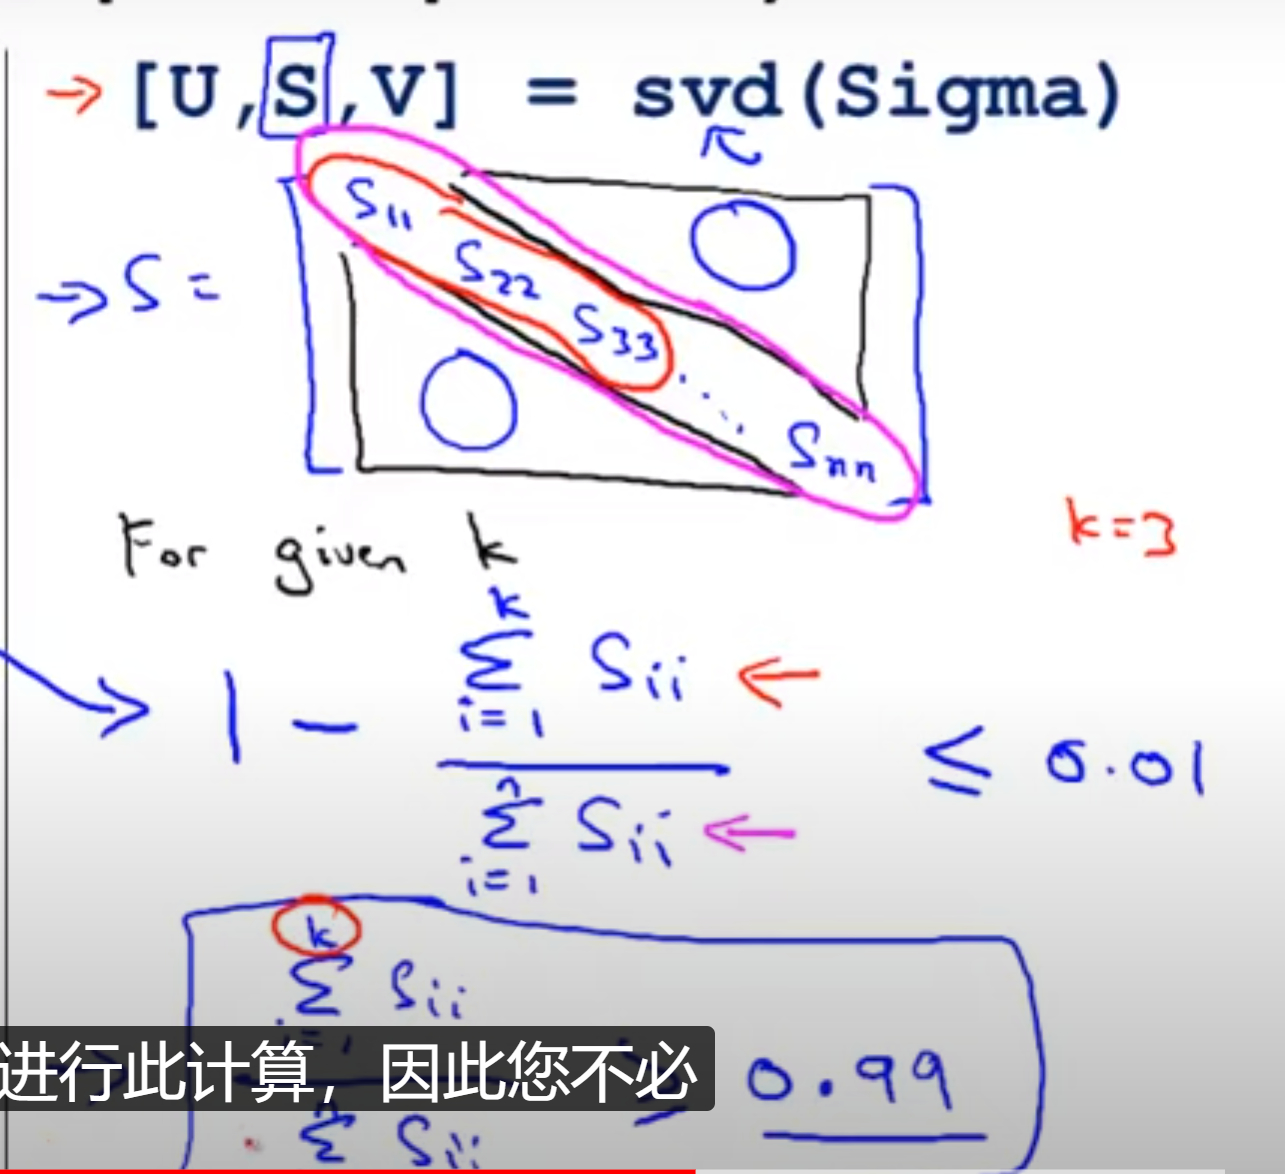 → [U,S,V] = svd(Sigma)
→ S =
S11
S22
S33
....
Snn
For given k
k=3
1 - k∑i=1 Sii / n∑i=1 Sii ≤ 0.01
k∑i=1 Sii / n∑ Sii ≥ 0.99
进行此计算，因此您不必